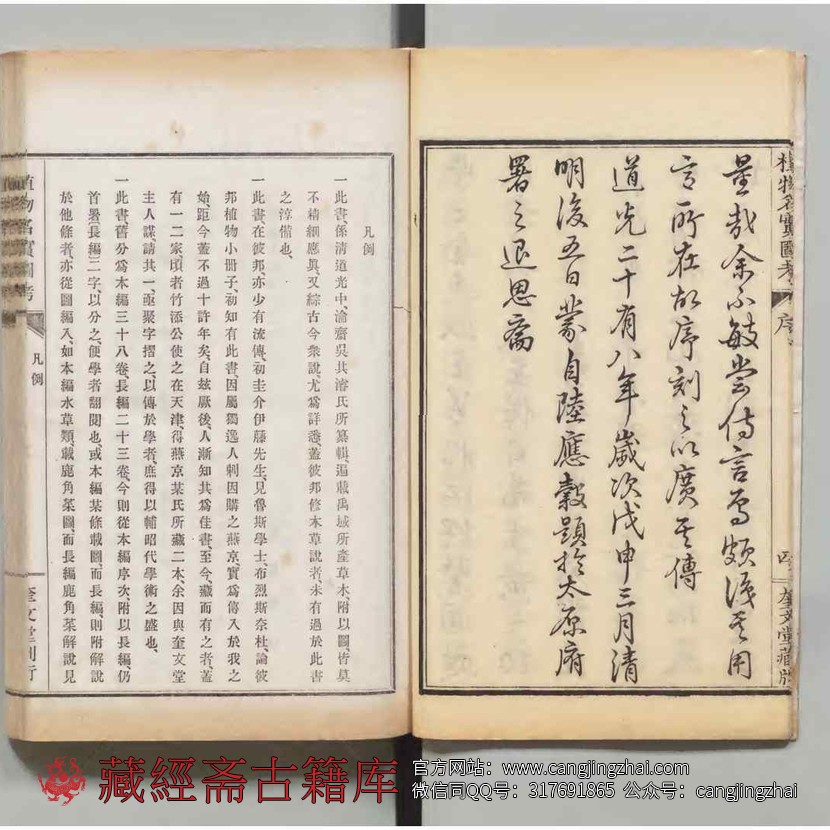 植物名實圖考
序
四
奎文堂藏版
量哉余不敏嘗侍言焉頗識其用
言所在故序刻之以廣其傳
道光二十有八年歲次戊申三月清
明後五日蒙自陸應穀題於太原府
署之退思齋
凡例
一此書、係清道光中、淪齋吳其濬氏所纂輯、遍載禹域所產草木、附以圖、皆莫
不精細應眞、又綜古今衆說、尤爲詳悉、蓋彼邦修本草說者、未有過於此書
之淳備也、
一此書在彼邦亦少有流傳、初圭介伊藤先生、見魯斯學士、布烈斯奈杜、論彼
邦植物小冊子、初知有此書、因屬獨逸人刺因購之燕京、實爲傳入於我之
始、距今蓋不過十許年矣、自玆厥後、人漸知其爲佳書、至今、藏而有之者、蓋
有一二家、頃者竹添公使之在天津、得燕京某氏所藏二本、余因與奎文堂
主人謀請共一、亟聚字摺之、以傳於學者、庶得以輔昭代學術之盛也、
一此書、舊分爲本編三十八卷、長編二十三卷、今則從本編序次、附以長編、仍
首署長編二字、以分之、便學者翻閱也、或本編某條載圖、而長編、則附解說
於他條者、亦從圖編入、如本編水草類、載鹿角菜圖、而長編鹿角菜解說見
植物名實圖考
凡例
奎文堂刊行
藏經斋古籍库
官方网站：www.cangjingzhai.com
微信同QQ号：317691865 公众号：cangjingzhai